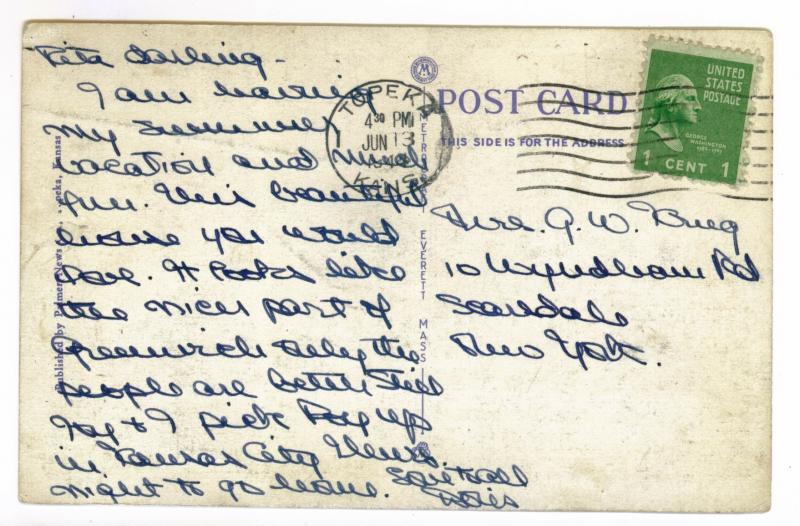 Rita darling -
I am having
my summer
vacation and much
fun. This beautiful
avenue you would
love. It looks like
the nicer part of
Greenwich only the
people are better. Still
Jay & I pick Roy up
in Kansas City Thurs.
night to go home. Love to all
Published by Palmer News Co., Topeka, Kansas
METRO EVERETT MASS
TOPEKA
4 30 PM
JUN 13
KANS
POST CARD
THIS SIDE IS FOR THE ADDRESS
UNITED
STATES
POSTAGE
GEORGE
WASHINGTON
1789-1797
1 CENT 1
Mrs. G. W. Burg
10 Wyndham Rd
Scarsdale
New York.